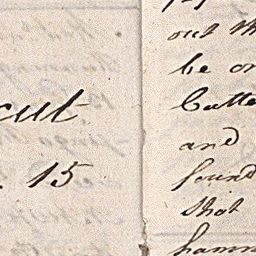 cut
15
out th
be on
Butte
and
found
shot
hamm